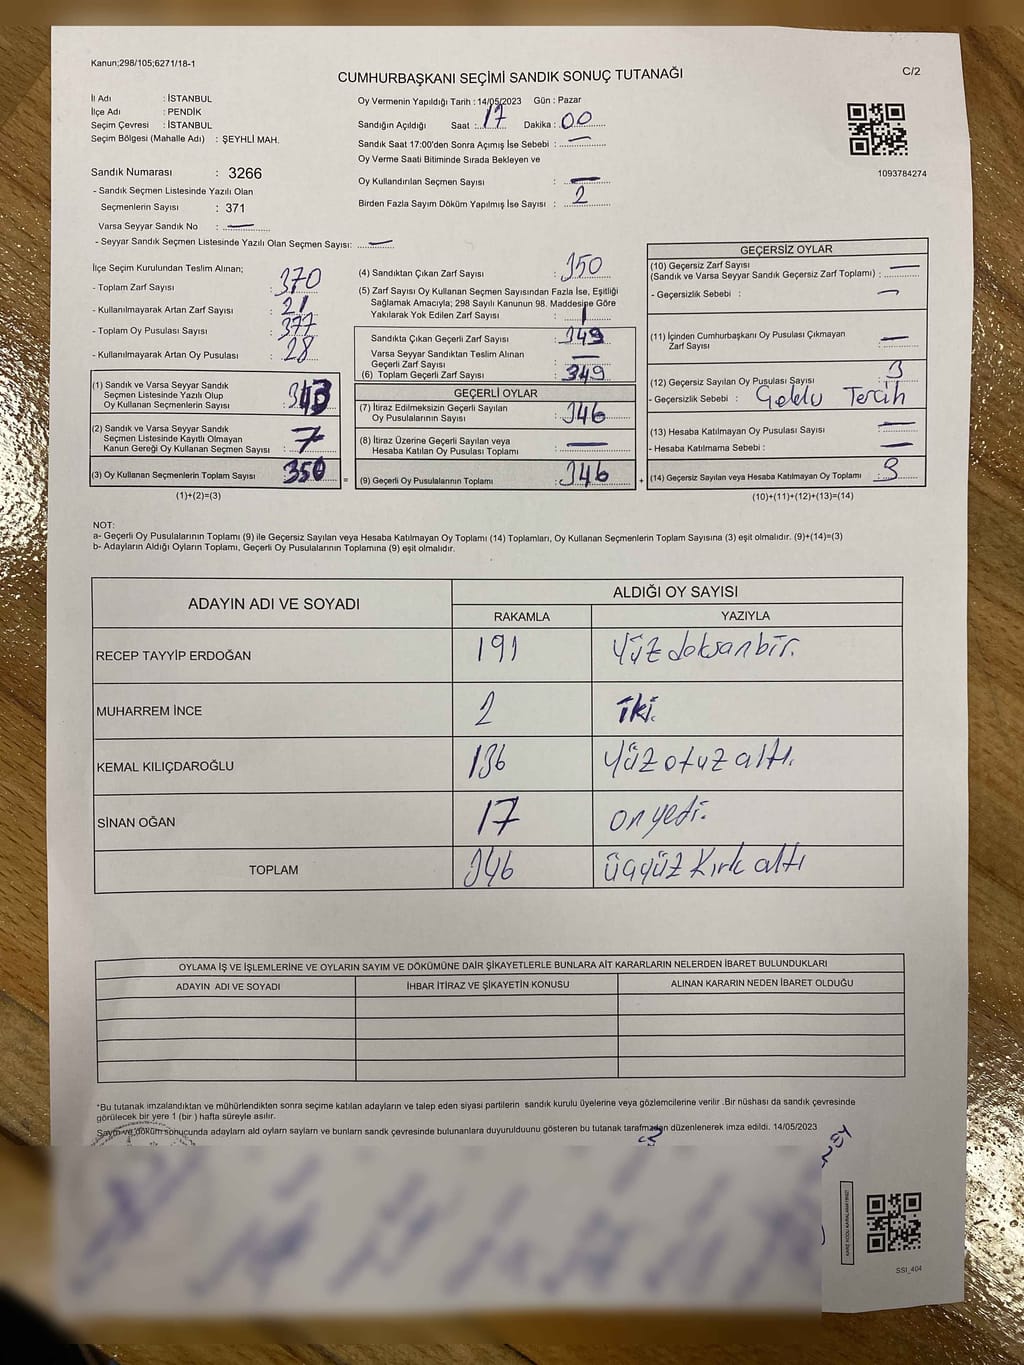 Kanun;298/105;6271/18-1
CUMHURBAŞKANI SEÇİMİ SANDIK SONUÇ TUTANAĞI
C/2
İl Adı : İSTANBUL
İlçe Adı : PENDİK
Seçim Çevresi : İSTANBUL
Seçim Bölgesi (Mahalle Adı) : ŞEYHLİ MAH.
Sandık Numarası : 3266
- Sandık Seçmen Listesinde Yazılı Olan
Seçmenlerin Sayısı : 371
Varsa Seyyar Sandık No : —
- Seyyar Sandık Seçmen Listesinde Yazılı Olan Seçmen Sayısı: —
Oy Vermenin Yapıldığı Tarih : 14/05/2023 Gün : Pazar
Sandığın Açıldığı Saat : 17 Dakika : 00
Sandık Saat 17:00'den Sonra Açımış İse Sebebi : —
Oy Verme Saati Bitiminde Sırada Bekleyen ve
Oy Kullandırılan Seçmen Sayısı : —
Birden Fazla Sayım Döküm Yapılmış İse Sayısı : 2
1093784274
İlçe Seçim Kurulundan Teslim Alınan;
- Toplam Zarf Sayısı : 370
- Kullanılmayarak Artan Zarf Sayısı : 21
- Toplam Oy Pusulası Sayısı : 377
- Kullanılmayarak Artan Oy Pusulası : 28
(1) Sandık ve Varsa Seyyar Sandık
Seçmen Listesinde Yazılı Olup
Oy Kullanan Seçmenlerin Sayısı : 343
(2) Sandık ve Varsa Seyyar Sandık
Seçmen Listesinde Kayıtlı Olmayan
Kanun Gereği Oy Kullanan Seçmen Sayısı : 7
(3) Oy Kullanan Seçmenlerin Toplam Sayısı : 350
(1)+(2)=(3)
(4) Sandıktan Çıkan Zarf Sayısı : 350
(5) Zarf Sayısı Oy Kullanan Seçmen Sayısından Fazla İse, Eşitliği
Sağlamak Amacıyla; 298 Sayılı Kanunun 98. Maddesine Göre
Yakılarak Yok Edilen Zarf Sayısı : 1
Sandıkta Çıkan Geçerli Zarf Sayısı : 349
Varsa Seyyar Sandıktan Teslim Alınan
Geçerli Zarf Sayısı : —
(6) Toplam Geçerli Zarf Sayısı : 349
GEÇERLİ OYLAR
(7) İtiraz Edilmeksizin Geçerli Sayılan
Oy Pusulasının Sayısı : 346
(8) İtiraz Üzerine Geçerli Sayılan veya
Hesaba Katılan Oy Pusulası Toplamı : —
= (9) Geçerli Oy Pusulalarının Toplamı : 346
GEÇERSİZ OYLAR
(10) Geçersiz Zarf Sayısı
(Sandık ve Varsa Seyyar Sandık Geçersiz Zarf Toplamı) : —
- Geçersizlik Sebebi : —
(11) İçinden Cumhurbaşkanı Oy Pusulası Çıkmayan
Zarf Sayısı : —
(12) Geçersiz Sayılan Oy Pusulası Sayısı : 3
- Geçersizlik Sebebi : Çoklu Tercih
(13) Hesaba Katılmayan Oy Pusulası Sayısı : —
- Hesaba Katılmama Sebebi : —
+ (14) Geçersiz Sayılan veya Hesaba Katılmayan Oy Toplamı : 3
(10)+(11)+(12)+(13)=(14)
NOT:
a- Geçerli Oy Pusulalarının Toplamı (9) ile Geçersiz Sayılan veya Hesaba Katılmayan Oy Toplamı (14) Toplamları, Oy Kullanan Seçmenlerin Toplam Sayısına (3) eşit olmalıdır. (9)+(14)=(3)
b- Adayların Aldığı Oyların Toplamı, Geçerli Oy Pusulalarının Toplamına (9) eşit olmalıdır.
ADAYIN ADI VE SOYADI
ALDIĞI OY SAYISI
RAKAMLA YAZIYLA
RECEP TAYYİP ERDOĞAN 191 Yüz doksan bir.
MUHARREM İNCE 2 iki.
KEMAL KILIÇDAROĞLU 136 Yüz otuz altı.
SİNAN OĞAN 17 on yedi.
TOPLAM 346 üçyüz kırk altı
OYLAMA İŞ VE İŞLEMLERİNE VE OYLARIN SAYIM VE DÖKÜMÜNE DAİR ŞİKAYETLERLE BUNLARA AİT KARARLARIN NELERDEN İBARET BULUNDUKLARI
ADAYIN ADI VE SOYADI İHBAR İTİRAZ VE ŞİKAYETİN KONUSU ALINAN KARARIN NEDEN İBARET OLDUĞU
*Bu tutanak imzalandıktan ve mühürlendikten sonra seçime katılan adayların ve talep eden siyasi partilerin sandık kurulu üyelerine veya gözlemcilerine verilir .Bir nüshası da sandık çevresinde
görülecek bir yere 1 (bir ) hafta süreyle asılır.
Sayım ve döküm sonucunda adayların ald oyların sayları ve bunların sandk çevresinde bulunanlara duyurulduunu gösteren bu tutanak tarafmzdan düzenlenerek imza edildi. 14/05/2023
SSI_404